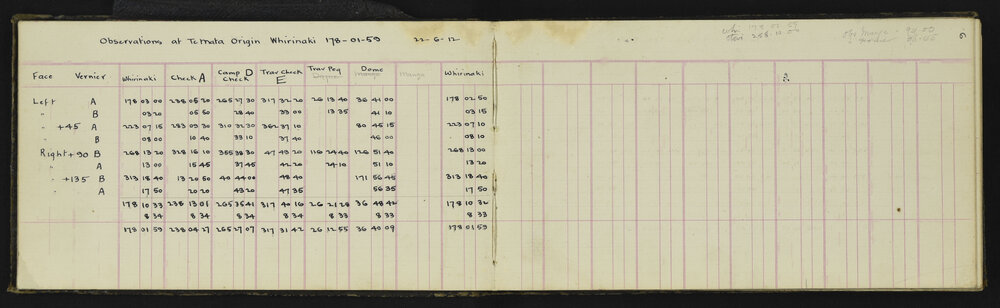 Observations at Te Mata Origin Whirinaki 178-01-59 22-6-12
Face Vernier Whirinaki Check A Camp D Check Trav Check E Trav Peg Dome Whirinaki
Left A 178 03 00 238 05 20 265 27 30 317 32 20 26 13 40 36 41 00 178 02 50
" B 03 20 05 50 28 40 33 00 13 35 41 10 03 15
" +45 A 223 07 15 283 09 30 310 32 30 362 37 10 80 45 15 223 07 10
" B 08 00 10 40 33 10 37 40 46 00 08 10
Right +90 B 268 13 20 328 16 10 355 38 30 47 43 20 116 24 40 126 51 40 268 13 00
" A 13 00 15 45 37 45 42 20 24 10 51 10 13 20
" +135 B 313 18 40 13 20 50 40 44 00 48 40 171 56 45 313 18 40
" A 17 50 20 20 43 20 47 35 56 35 17 50
178 10 33 238 13 01 265 35 41 317 40 16 26 21 28 36 48 42 178 10 32
8 34 8 34 8 34 8 34 8 33 8 33 8 33
178 01 59 238 04 27 265 27 07 317 31 42 26 12 55 36 40 09 178 01 59